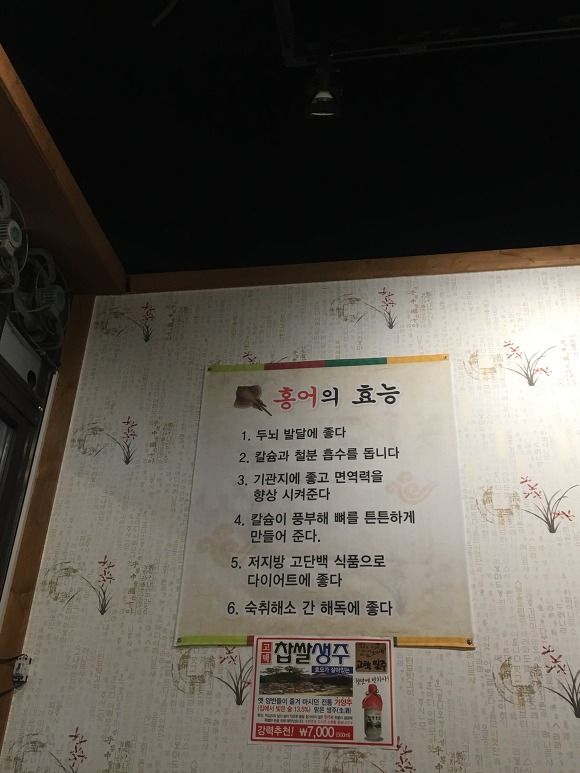 홍어의 효능
1. 두뇌 발달에 좋다
2. 칼슘과 철분 흡수를 돕니다
3. 기관지에 좋고 면역력을
향상 시켜준다
4. 칼슘이 풍부해 뼈를 튼튼하게
만들어 준다.
5. 저지방 고단백 식품으로
다이어트에 좋다
6. 숙취해소 간 해독에 좋다
찹쌀생주
효모가 살아있는
옛 양반들이 즐겨 마시던 전통 가양주
(집에서 빚은 술 13.5%) 맑은 생주(生酒)
강력추천! ₩7,000 (500ml)